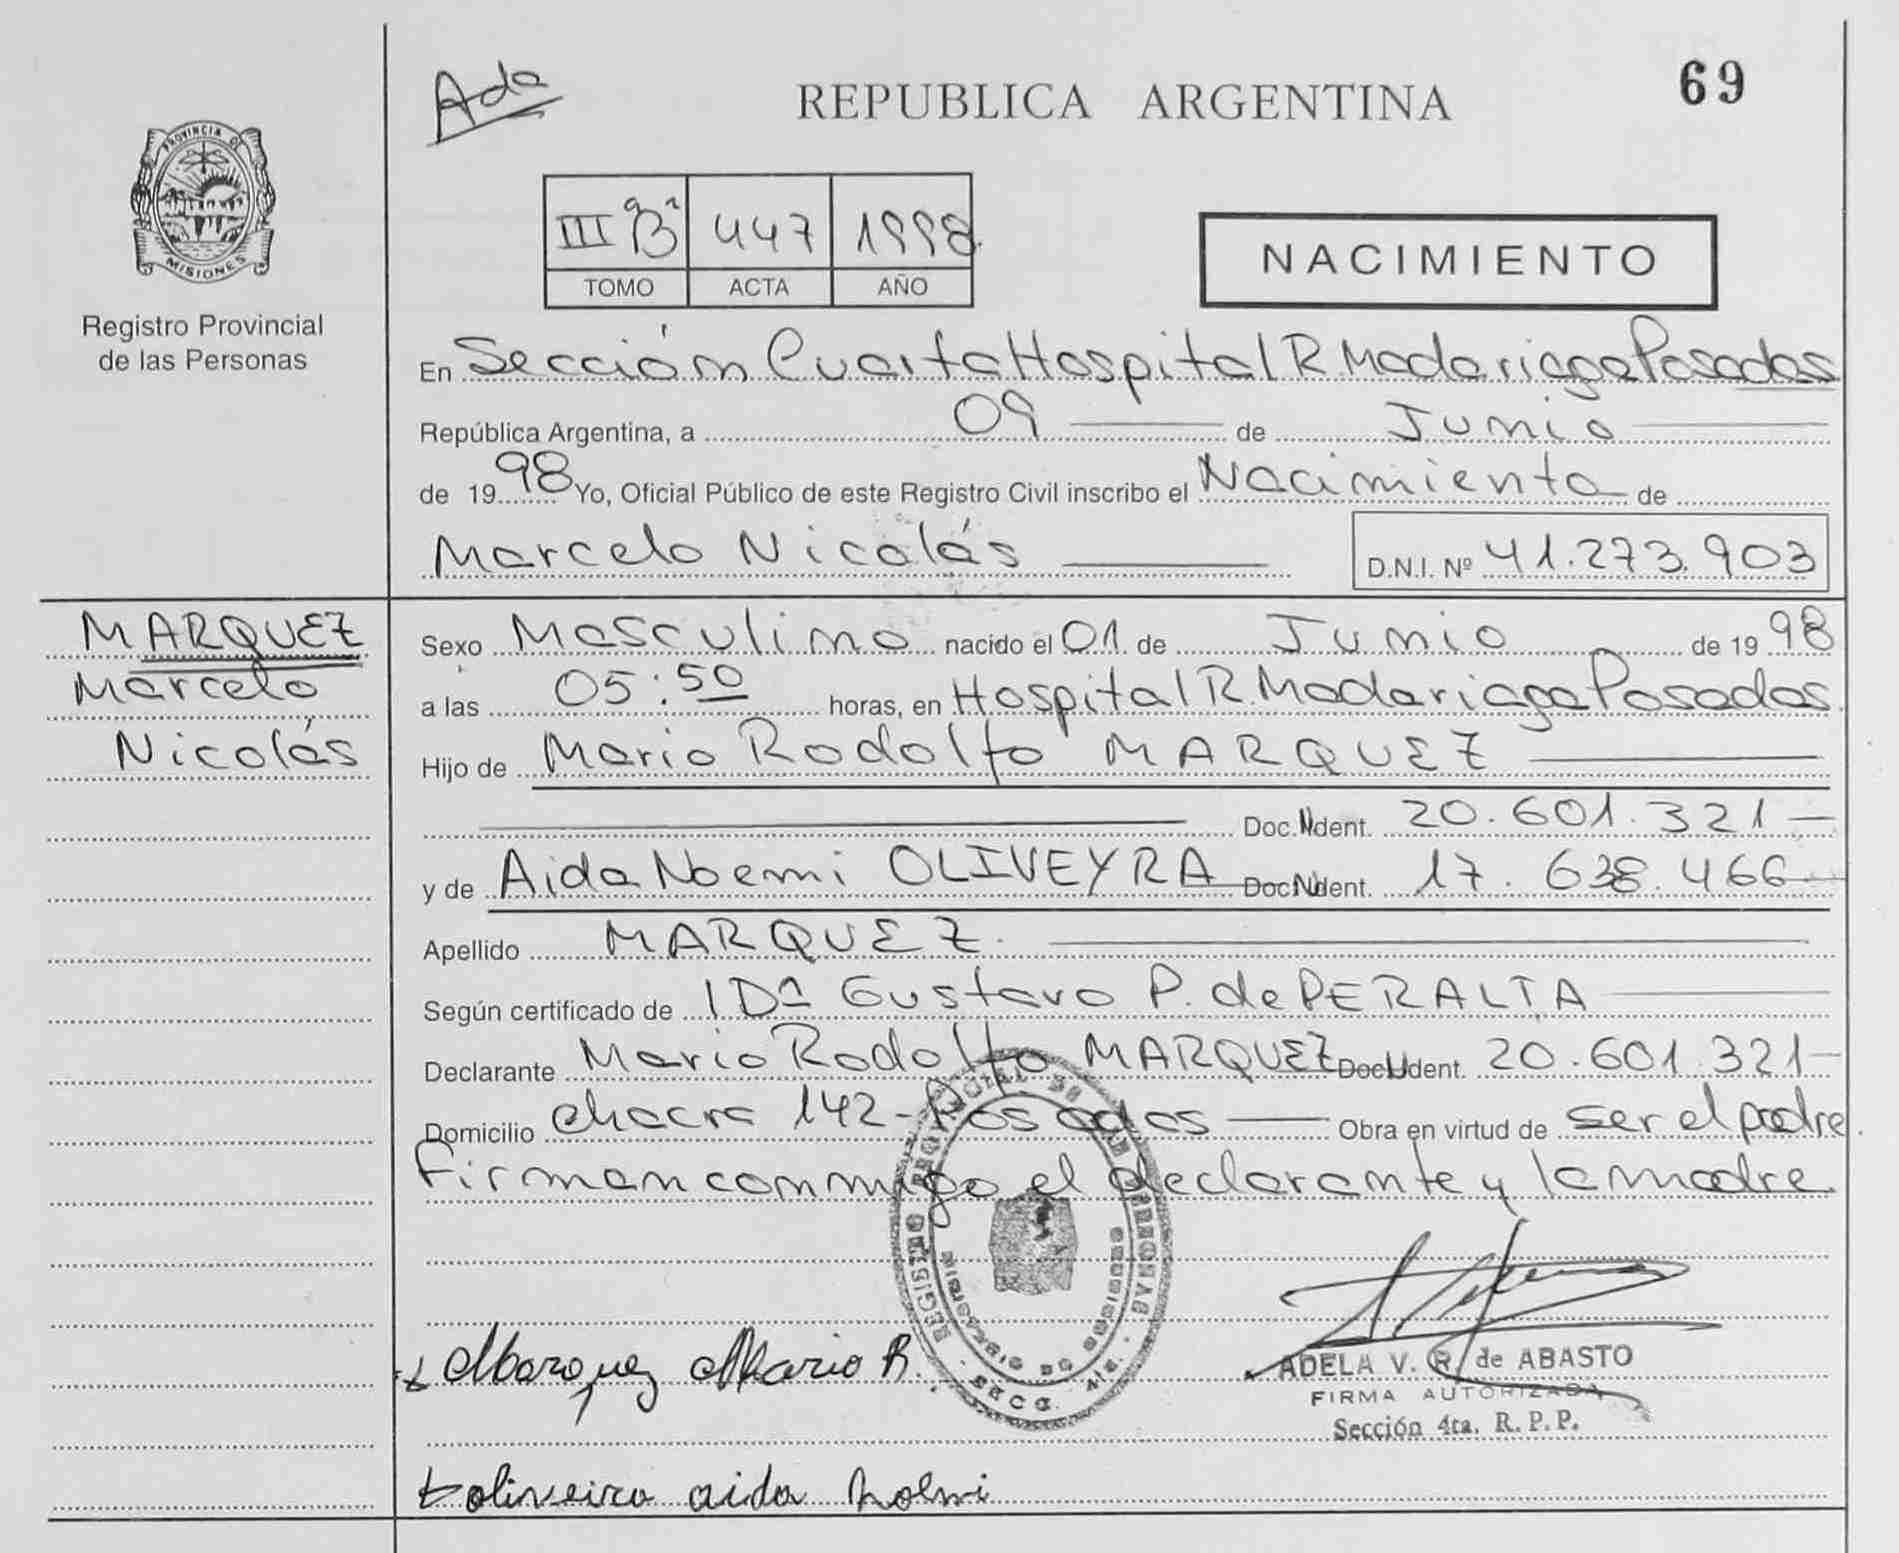 Ada
REPUBLICA ARGENTINA
69
PROVINCIA DE
MISIONES
Registro Provincial
de las Personas
III B 447 1998
TOMO ACTA AÑO
NACIMIENTO
En Sección Cuarta Hospital R. Madariaga Posadas
República Argentina, a 09 de Junio
de 1998 Yo, Oficial Público de este Registro Civil inscribo el Nacimiento de
Marcelo Nicolás D.N.I. Nº 41.273.903
MARQUEZ
Marcelo
Nicolás
Sexo Masculino nacido el 01 de Junio de 1998
a las 05:50 horas, en Hospital R. Madariaga Posadas.
Hijo de Mario Rodolfo MARQUEZ
Doc. Ident. 20.601.321
y de Aida Noemi OLIVEYRA Doc. Ident. 17.638.466
Apellido MARQUEZ.
Según certificado de Gustavo P. de PERALTA
Declarante Mario Rodolfo MARQUEZ Doc. Ident. 20.601.321
Domicilio chacra 142 - Posadas Obra en virtud de ser el padre.
Firman conmigo el declarante y la madre.
Marquez Mario R.
ADELA V. R. de ABASTO
FIRMA AUTORIZADA
Sección 4ta. R. P. P.
oliveira aida noemi